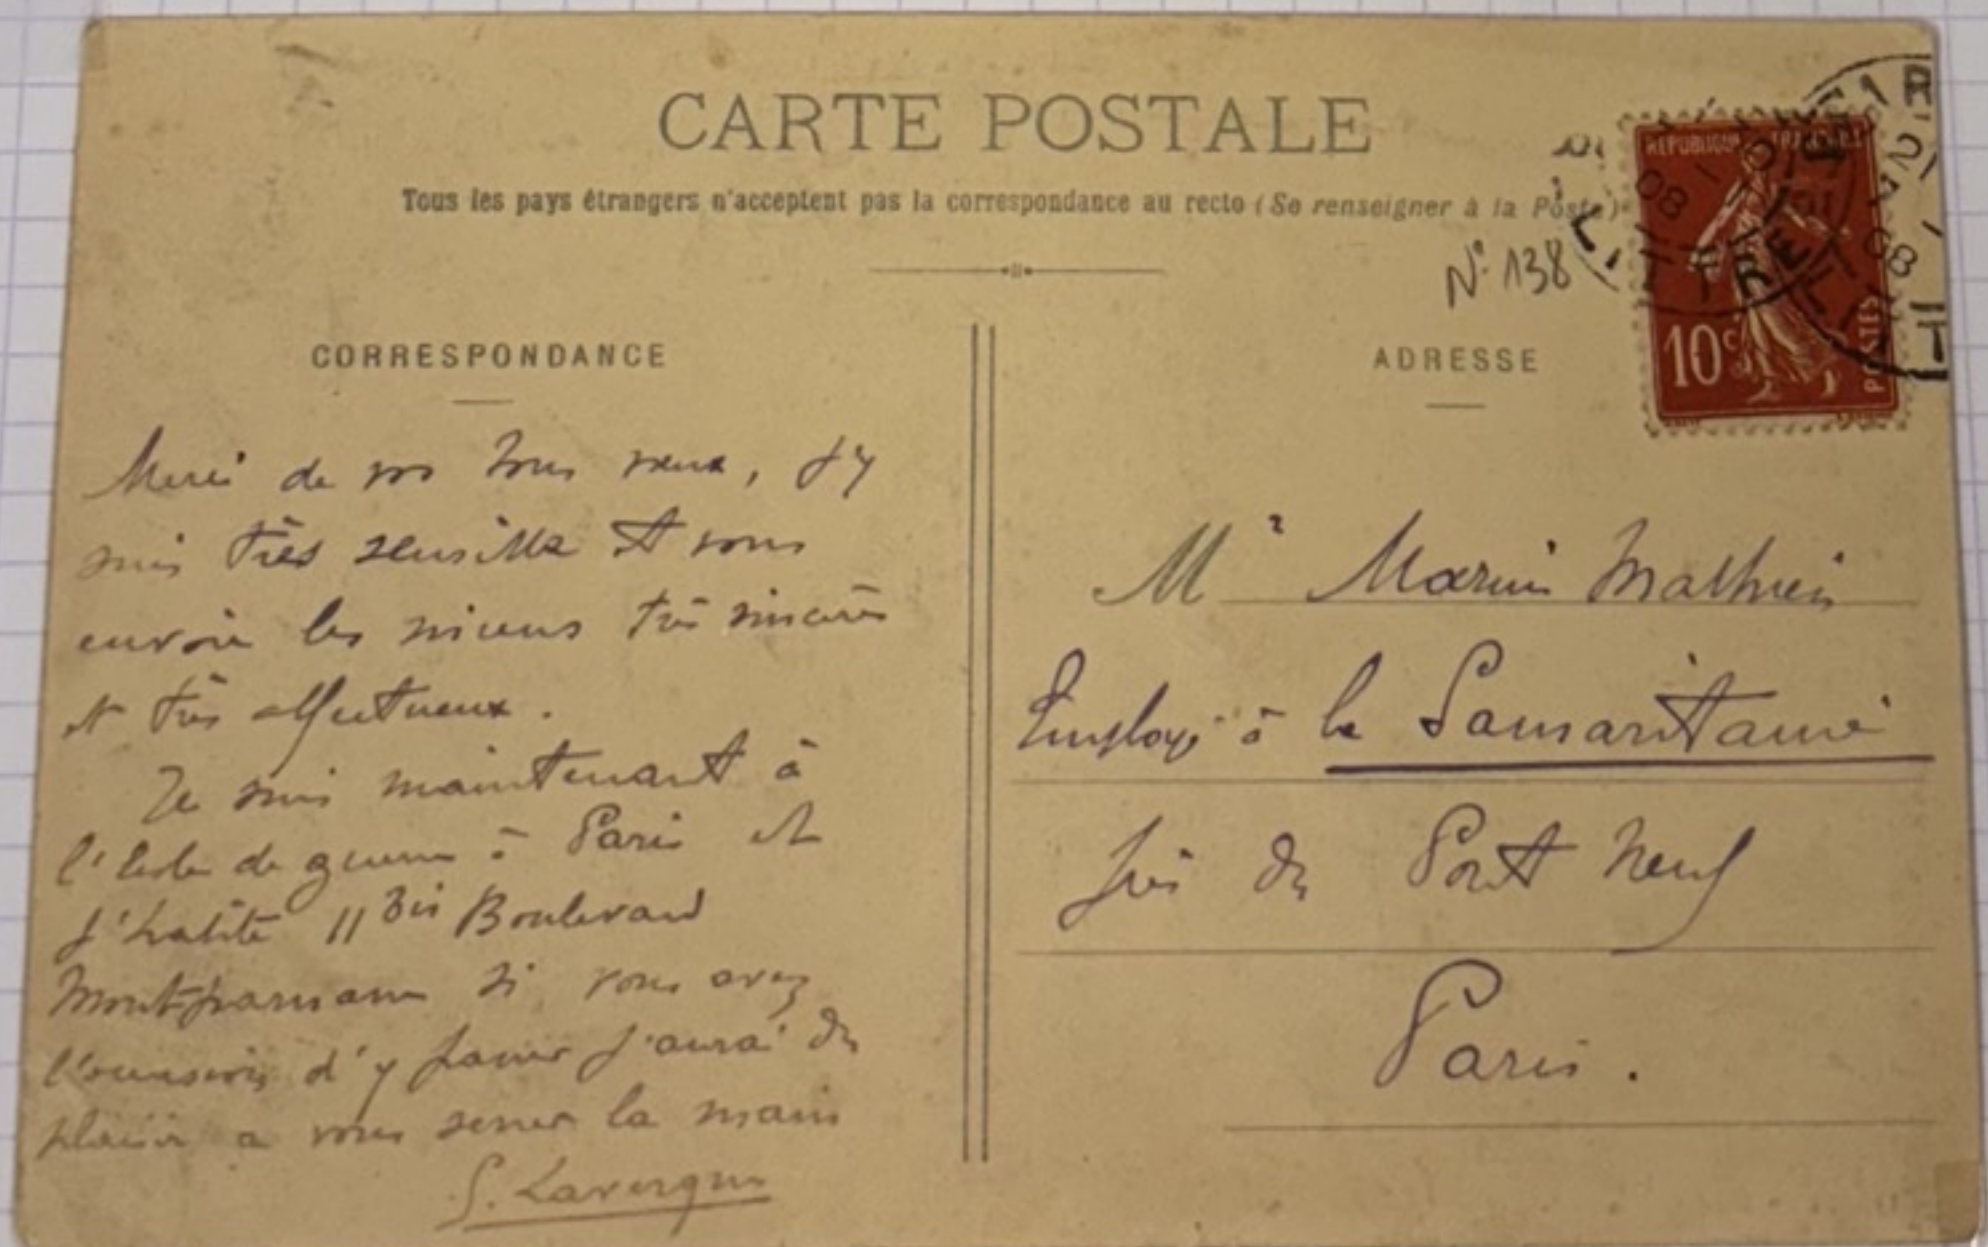 CARTE POSTALE
Tous les pays étrangers n'acceptent pas la correspondance au recto (Se renseigner à la Poste)
N° 138
REPUBLIQUE FRANÇAISE
10c
POSTES
CORRESPONDANCE
Merci de vos bons vœux, j'y
suis très sensible et vous
envoie les miens très sincères
et très affectueux.
Je suis maintenant à
l'école de guerre à Paris et
j'habite 11 bis Boulevard
Montparnasse si vous avez
l'occasion d'y passer j'aurai du
plaisir a vous serrer la main
Lavergne
ADRESSE
Mr Marius Mathieu
Employé à la Samaritaine
près du Pont Neuf
Paris.